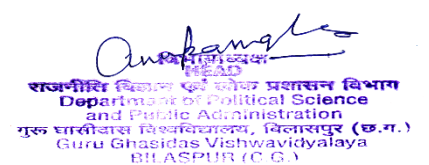 विभागाध्यक्ष
HEAD
राजनीति विज्ञान एवं लोक प्रशासन विभाग
Department of Political Science
and Public Administration
गुरू घासीदास विश्वविद्यालय, बिलासपुर (छ.ग.)
Guru Ghasidas Vishwavidyalaya
BILASPUR (C.G.)